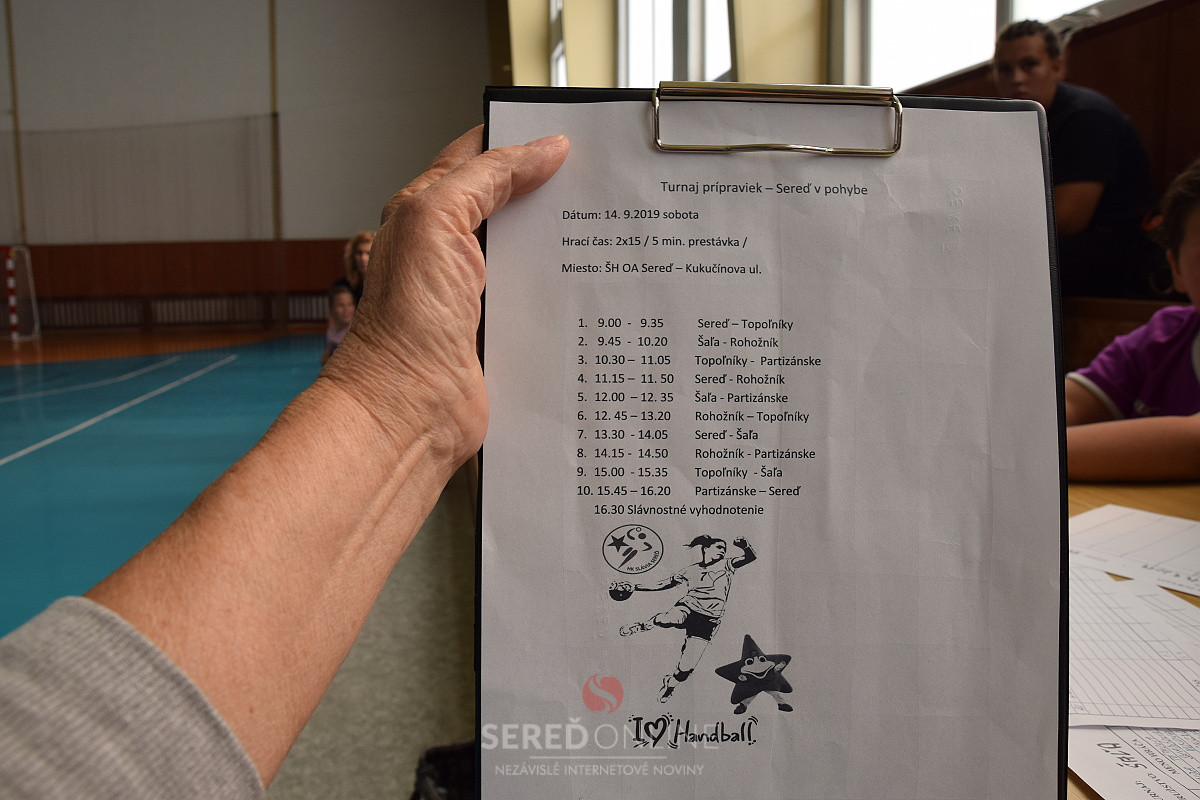 Turnaj prípraviek – Sereď v pohybe
Dátum: 14. 9.2019 sobota
Hrací čas: 2x15 / 5 min. prestávka /
Miesto: ŠH OA Sereď – Kukučínova ul.
1. 9.00 - 9.35 Sereď – Topoľníky
2. 9.45 - 10.20 Šaľa - Rohožník
3. 10.30 – 11.05 Topoľníky - Partizánske
4. 11.15 – 11. 50 Sereď - Rohožník
5. 12.00 – 12. 35 Šaľa - Partizánske
6. 12. 45 – 13.20 Rohožník – Topoľníky
7. 13.30 - 14.05 Sereď - Šaľa
8. 14.15 - 14.50 Rohožník - Partizánske
9. 15.00 - 15.35 Topoľníky - Šaľa
10. 15.45 – 16.20 Partizánske – Sereď
16.30 Slávnostné vyhodnotenie
HK SLÁVIA SEREĎ
7
I Handball
SEREĎ ONLINE
NEZÁVISLÉ INTERNETOVÉ NOVINY
ŠAĽA